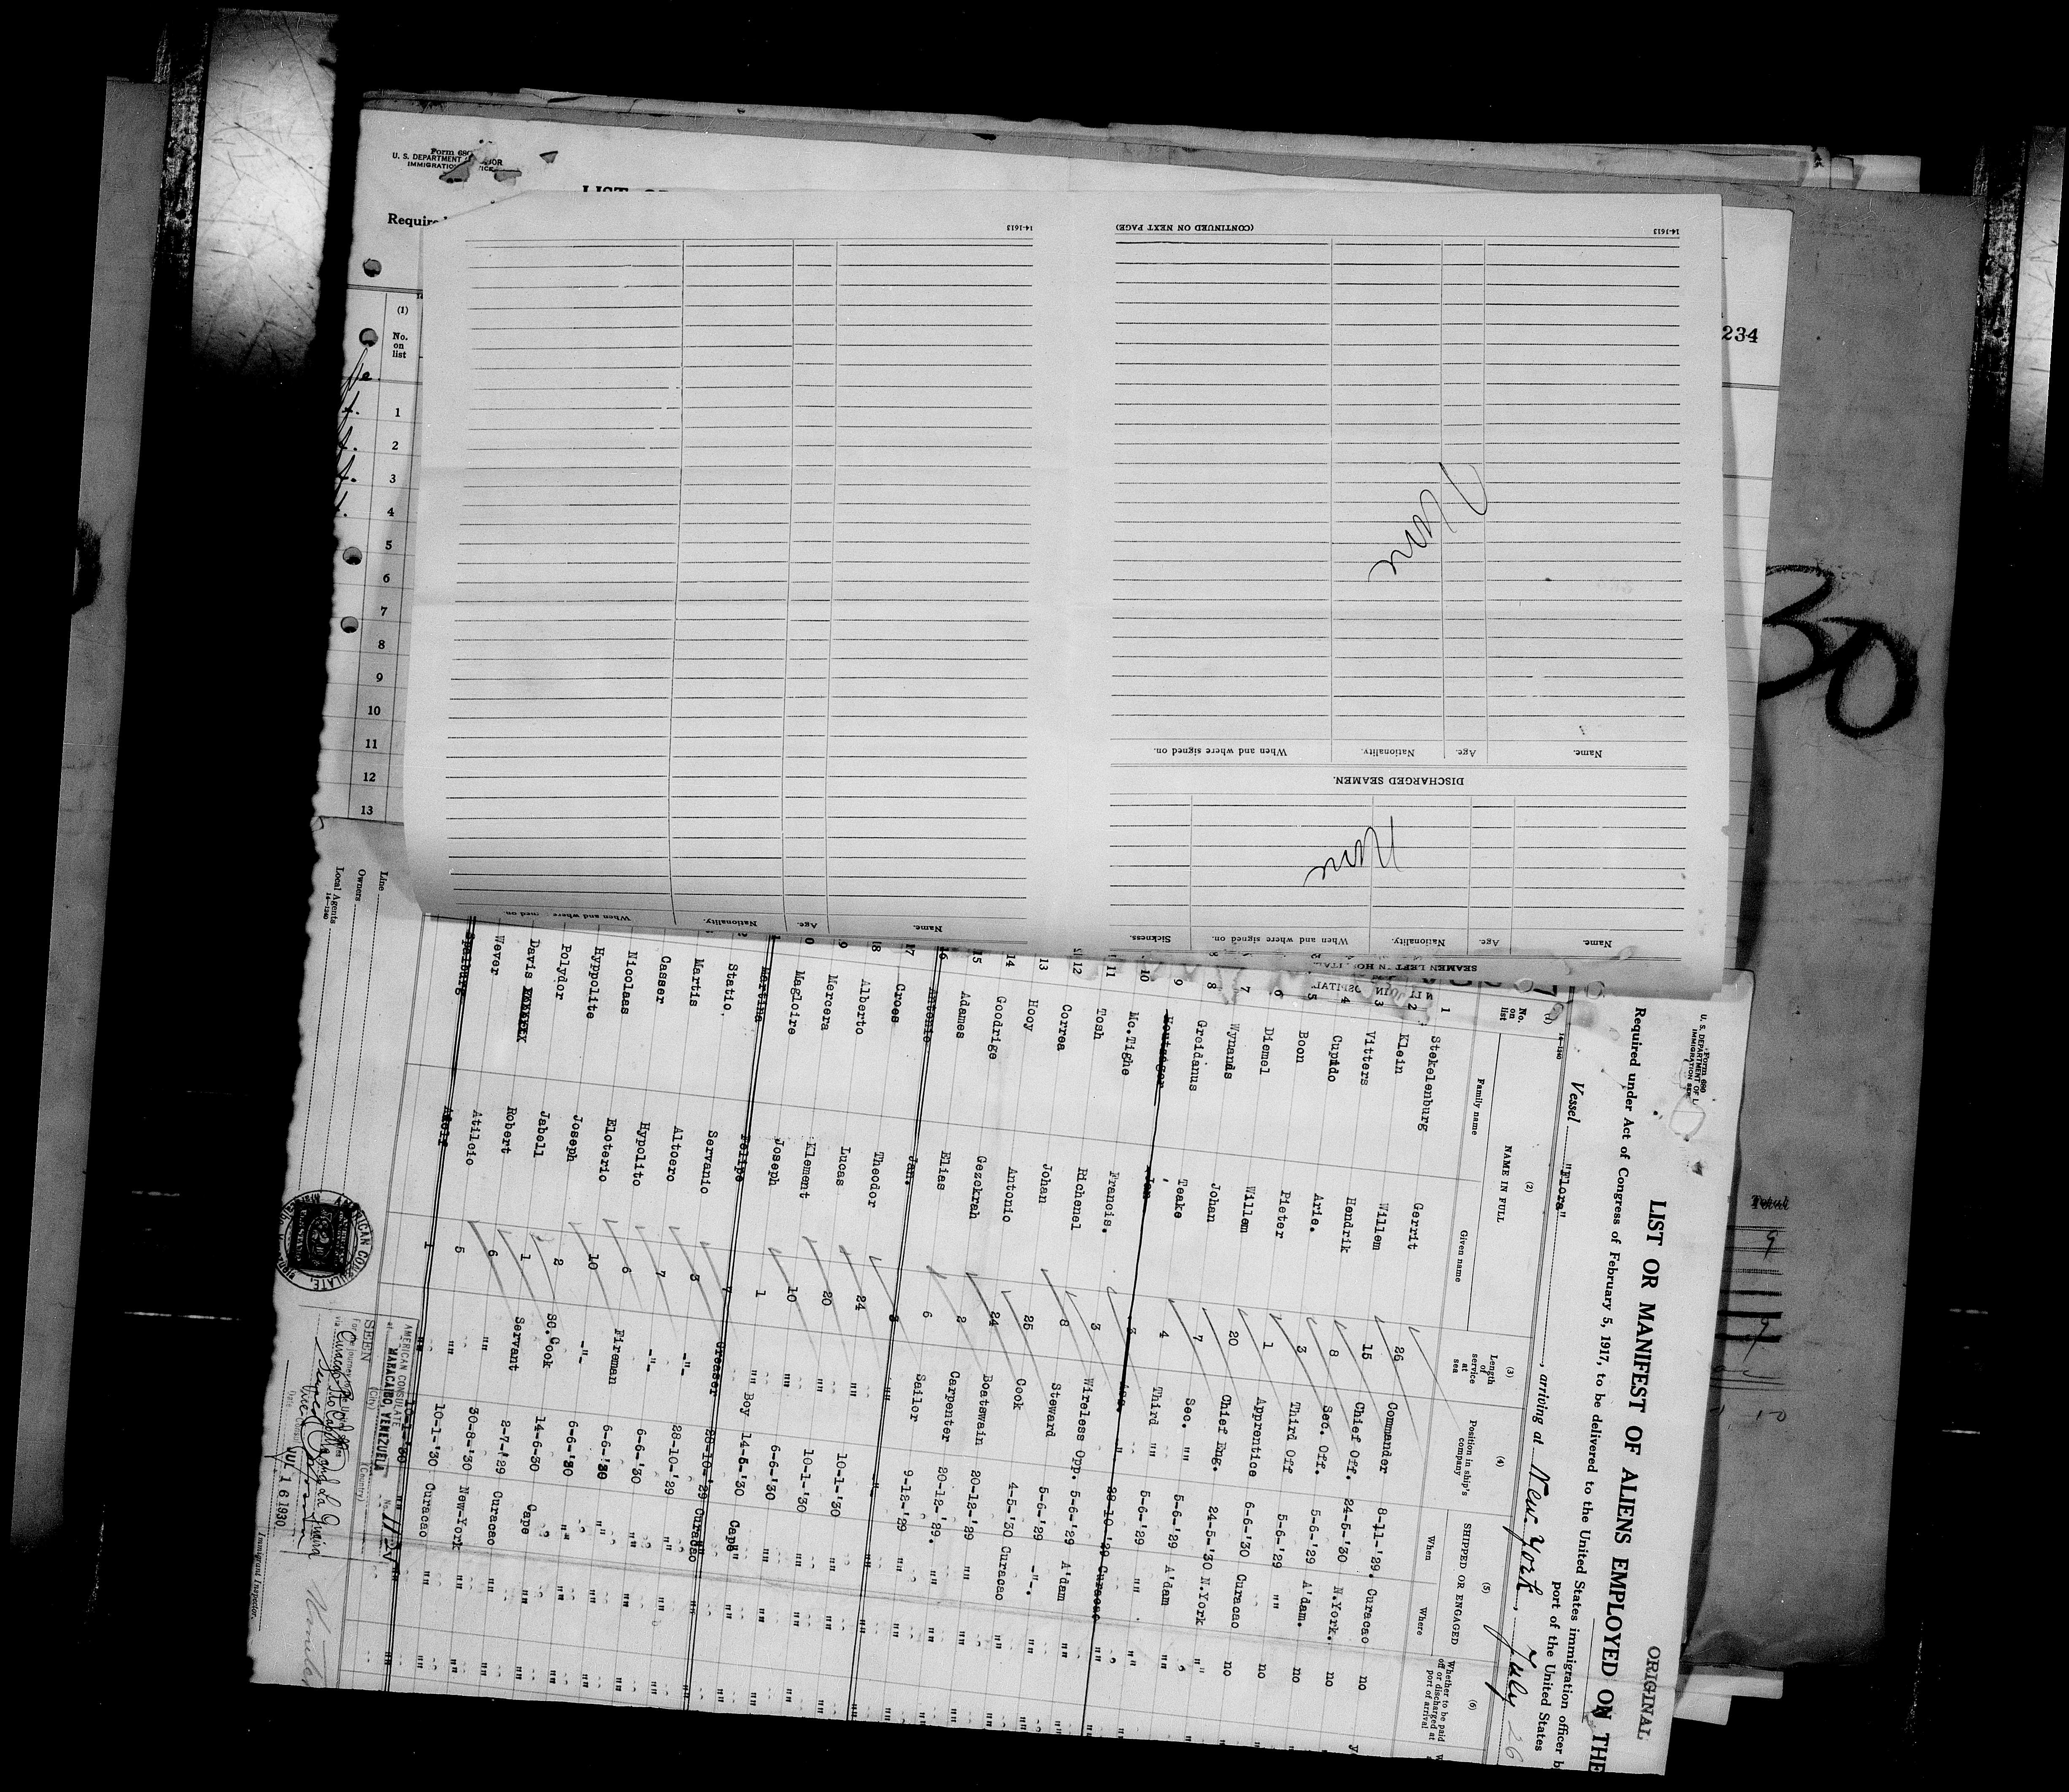 Form 680
U. S. DEPARTMENT
IMMIGRATION
(1)
No.
on
list
1
2
3
4
5
6
7
8
9
10
11
12
13
234
30
Total
9
9
10
SEAMEN LEFT IN HOSPITAL
Name. Age. Nationality. When and where signed on. Sickness.
None
DISCHARGED SEAMEN.
Name. Age. Nationality. When and where signed on.
None
14-1613 (CONTINUED ON NEXT PAGE)
Name. Age. Nationality. When and where signed on.
14-1613
Form 686
U. S. DEPARTMENT OF L
IMMIGRATION SER
ORIGINAL
LIST OR MANIFEST OF ALIENS EMPLOYED ON THE
Required under Act of Congress of February 5, 1917, to be delivered to the United States immigration officer b
port of the United States
Vessel "Flora", arriving at New York, July 26
(1) (2) (3) (4) (5) (6)
No. on list NAME IN FULL Length of service at sea Position in ship's company SHIPPED OR ENGAGED Whether to be paid off or discharged at port of arrival
Family name Given name When Where
1 Stekelenburg Gerrit 26 Commander 8-11-'29. Curacao no
2 Klein Willem 15 Chief Off. 24-5-'30 N.York. no
3 Vitters Hendrik 8 Sec. Off. 5-6-'29 A'dam. no
4 Cupido Arie. 3 Third Off 5-6-'29 "" no
5 Boon Pieter 1 Apprentice 6-6-'30 Curacao no
6 Diemel Willem 20 Chief Eng. 24-5-'30 N.York "
7 Wynands Johan 7 Sec. "" 5-6-'29 A'dam ""
8 Greidanus Teake 4 Third "" 5-6-'29 "" ""
9 Houtsager Jan 3 Ass. " 28-10-'29 Curacao ""
10 Mc.Tighe Francis. 3 Wireless Opp. 5-6-'29 A'dam ""
11 Tosh Richenel 8 Steward 5-6-'29 -"-. ""
12 Correa Johan 25 Cook 4-5-'30 Curacao ""
13 Hooy Antonio 24 Boatswain 20-12-'29 "" ""
14 Goodrige Gezekrah 2 Carpenter 20-12-'29. "" ""
15 Adames Elias 6 Sailor 9-12-'29 "" ""
16 Antonie Jan. 3 "" -"- "" ""
17 Croes Theodor 24 "" 10-1-'30 "" ""
18 Alberto Lucas 20 "" 10-1-'30 "" ""
Mercera Klement 10 "" 6-6-'30 "" ""
Magloire Joseph 1 "" Boy 14-5-'30 Cape ""
Martina Felipe 7 Greaser 28-10-'29 Curacao ""
Statio. Servanio 3 -"- 28-10-'29 "" ""
Martis Altoero 7 -"- 6-6-'30 "" ""
Casser Hypolito 6 Fireman 6-6-'30 "" ""
Nicolaas Eloterio 10 -"- 6-6-'30 "" ""
Hyppolite Joseph 2 SC.Cook 14-6-30 Cape ""
Polydor Jabell 1 Servant 2-7-'29 Curacao ""
Davis Robert 6 "" 30-8-'30 New-York ""
Wever Atilcio 5 "" 10-1-'30 Curacao ""
Spalburg Adolf 1 "" 10-1-'30 "" ""
Line
Owners
Local Agents
14-1240
Immigrant Inspector.
AMERICAN CONSULATE
AMERICAN CONSULATE
at MARACAIBO, VENEZUELA
(City) (Country)
SEEN No. 1120
For the journey to the United States
via Curacao
La Guaira
Date JUL 16 1930